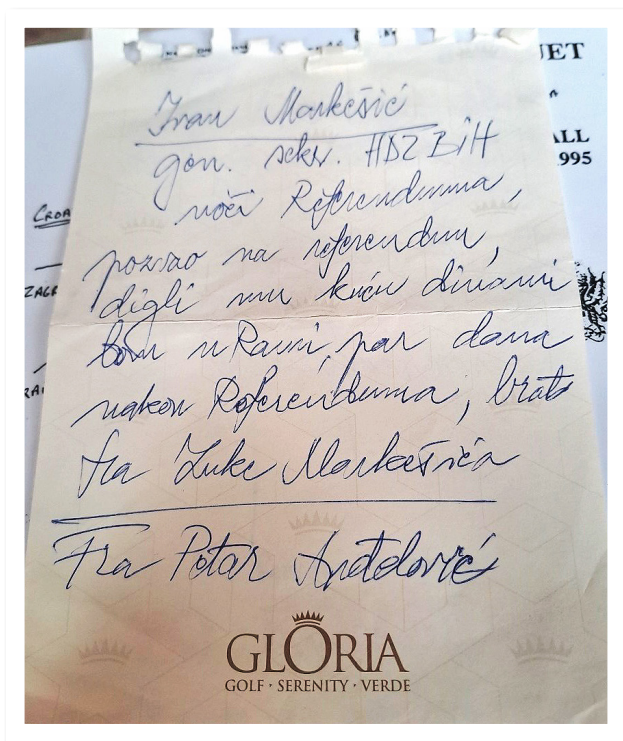 JET
ALL
995
CROA
ZAGR
RAI
Ivan Markešić
gen. sekr. HDZ BiH
noći Referenduma,
pozvao na referendum,
digli mu kuću dinami
tom u Rami, par dana
nakon Referenduma, brat
fra Luke Markešića
Fra Petar Anđelović
GLORIA
GOLF · SERENITY · VERDE